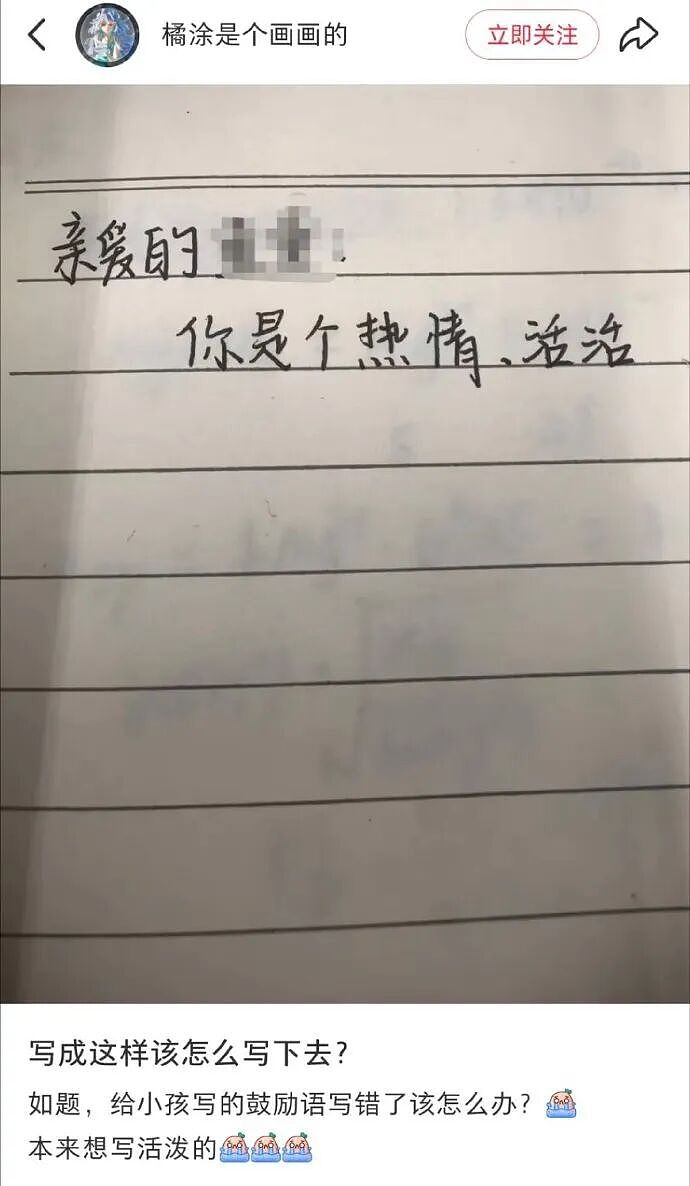 橘涂是个画画的
立即关注
亲爱的
你是个热情、活活
写成这样该怎么写下去？
如题，给小孩写的鼓励语写错了该怎么办？
本来想写活泼的